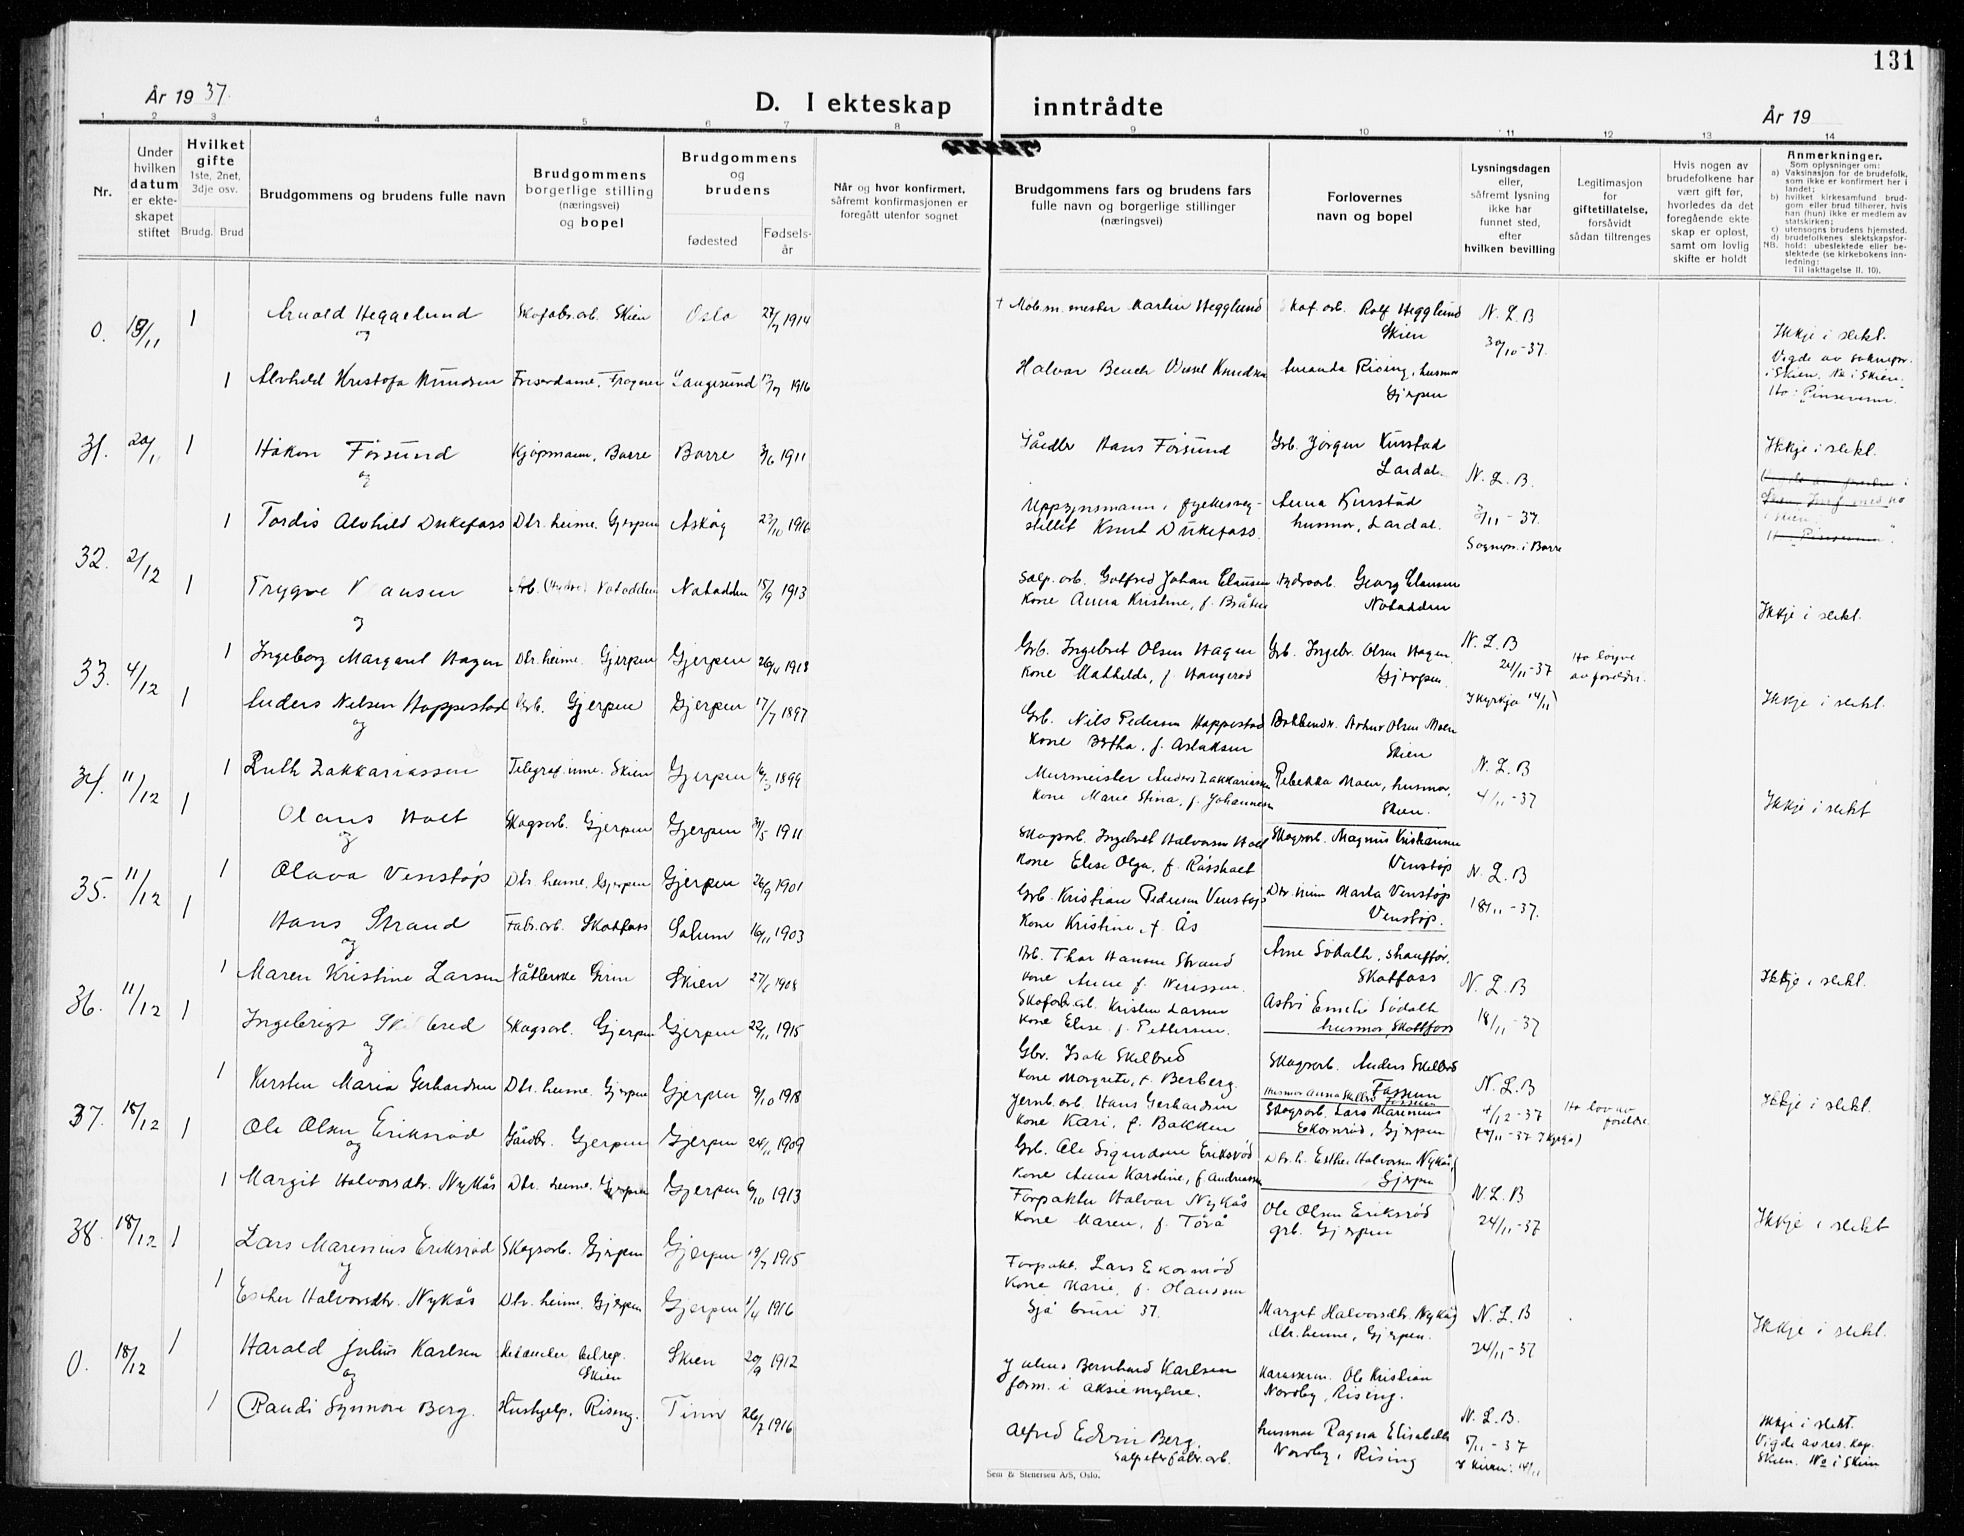 131
År 1937.
D. I ekteskap inntrådte
År 19
1 2 3 4 5 6 7 8 9 10 11 12 13 14
Nr.
Under hvilken datum er ekteskapet stiftet
Hvilket gifte 1ste, 2net, 3dje osv.
Brudg. Brud
Brudgommens og brudens fulle navn
Brudgommens borgerlige stilling (næringsvei) og bopel
Brudgommens og brudens
fødested
Fødselsår
Når og hvor konfirmert, såfremt konfirmasjonen er foregått utenfor sognet
Brudgommens fars og brudens fars fulle navn og borgerlige stillinger (næringsvei)
Forlovernes navn og bopel
Lysningsdagen eller, såfremt lysning ikke har funnet sted, efter hvilken bevilling
Legitimasjon for giftetillatelse, forsåvidt sådan tiltrenges
Hvis nogen av brudefolkene har vært gift før, hvorledes da det foregående ekteskap er opløst, samt om lovlig skifte er holdt
Anmerkninger.
Som oplysninger om:
a) Vaksinasjon for de brudefolk, som ikke er konfirmert her i landet;
b) hvilket kirkesamfund brudgom eller brud tilhører, hvis han (hun) ikke er medlem av statskirken;
c) utensogns brudens hjemsted.
d) brudefolkenes slektskapsforhold: ubeslektede eller beslektede (se kirkebokens innledning:
NB.
Til iakttagelse II. 10).
0. 19/11 1 Arnold Heggelund Skofabr.arb. Skien Oslo 27/7 1914
og
1 Alvhild Kristofa Knudsen Friserdame, Frogner Langesund 17/7 1916
+ Møb.m.mester Martin Hegglund
Skof. arb. Rolf Hegglund
Skien
N. L. B
30/10-37.
Halvor Bench Viesel Knudsen
Amanda Rising, husmor
Gjerpen
Ikkje i slekt.
Vigde av soknepr.
i Skien. No i Skien.
Ho: Pinseven.
31. 20/11 1 Håkon Førsund Kjøpmann, Borre Borre 3/6 1911
og
1 Tordis Alvhild Dukefoss Dtr. heime. Gjerpen Askøy 27/10 1916
Gårdbr Hans Førsund
Grb. Jørgen Kurstad
Lardal.
N. L. B.
Uppsynsmann i fylkesveg-
stillet Knut Dukefoss.
Anna Kurstad
husmor, Lardal.
3/11-37.
Sognepr. i Borre
Ikkje i slekt.
32. 2/12 1 Trygve Clausen Arb. (Hydro) Notodden Notodden 15/9 1913
og
1 Ingeborg Margaret Hagen Dtr. heime. Gjerpen Gjerpen 26/4 1918
Salp. arb. Gotfred Johan Clausen
Kone Anna Kristine, f. Bråten
Hydroarb. Georg Clausen
Notodden
Grb. Ingebret Olsen Hagen
Kone Mathilde, f. Haugerød
Grb. Ingebr. Olsen Hagen
Gjerpen
N. L. B
24/11-37
I kyrkja 14/11
Ho løyve
av foreldri.
Ikkje i slekt.
33. 4/12 1 Anders Nilsen Hoppestad Arb. Gjerpen Gjerpen 17/7 1897
og
1 Ruth Zakkariassen Telegraf.inne. Skien Gjerpen 16/3 1899
Grb. Nils Pedersen Hoppestad
Kone Bertha, f. Aslaksen
Bokbinder. Arthur Olsen Moen
Skien
Murmeister Anders Zakkariassen
Kone Marie Stina, f. Johannesen
Rebekka Moen, husmor,
Skien.
N. L. B
4/11-37
Ikkje i slekt.
34. 11/12 1 Olaus Holt Skogsarb. Gjerpen Gjerpen 31/5 1911
og
1 Olava Venstøp Dtr. heime, Gjerpen Gjerpen 26/9 1901
Skogsarb. Ingebret Halvorsen Holt
Kone Elise Olga, f. Råsholt
Skogsarb. Magnus Kristiansen
Venstøp
Grb. Kristian Pedersen Venstøp
Kone Kristine, f. Ås
Dtr. heim Marta Venstøp
Venstøp.
N. L. B
18/11-37.
Ikkje i slekt
35. 11/12 1 Hans Strand Fabr.arb. Skotfoss Solum 16/11 1903
og
1 Maren Kristine Larsen Nåtlerske Gjerpen Skien 27/6 1908
Arb. Thor Hansen Strand
Kone Anne f. Nerissen.
Skofabr.arb. Kristen Larsen
Kone Elise f. Pettersen.
Arne Sødalh, sjauffør,
Skotfoss
Astri Emelie Sødalh
husmor, Skottfoss
N. L. B
18/11-37
Ikkje i slekt.
36. 11/12 1 Ingebrigt Skilbred Skogsarb. Gjerpen Gjerpen 22/11 1915
og
1 Kirsten Maria Gerhardsen Dtr. heime. Gjerpen Gjerpen 9/10 1918
Gbr. Isak Skilbred
Kone Margrete, f. Berberg.
Jernb.arb. Hans Gerhardsen
Kone Kari, f. Bakken
Skogsarb. Anders Skilbred
Fossum
Husmor Anna Skilbred Fossum
N. L. B
4/12-37
Ho lov av
foreldre
Ikkje i slekt.
37. 18/12 1 Ole Olsen Eriksrød Gårdbr. Gjerpen Gjerpen 24/11 1909
og
1 Margit Halvorsdtr. Nykås Dtr. heime. Gjerpen Gjerpen 6/10 1913
Skogsarb. Lars Marenius
Ekornrød, Gjerpen
Grb. Ole Sigurdsen Eriksrød
Kone Anna Karoline, f. Andreassen
Dtr. h. Esther Halvorsen Nykås,
Gjerpen
Forpakter Halvor Nykås
Kone Maren, f. Torå
N. L. B
24/11-37
Ikkje i slekt
38. 18/12 1 Lars Marenius Eriksrød Skogsarb. Gjerpen Gjerpen 19/7 1915
og
1 Esther Halvorsdtr. Nykås Dtr. heime. Gjerpen Gjerpen 1/4 1916
Ole Olsen Eriksrød
grb. Gjerpen
Forpakt. Lars Ekornrød
Kone Marie, f. Olaussen
Sjå bruri 37.
Margit Halvorsdtr. Nykås
dtr. heime, Gjerpen.
N. L. B
24/11-37
Ikkje i slekt.
0. 18/12 1 Harald Julius Karlsen Skien 20/9 1912
og
Skien
1 Randi Synnøve Berg. Hushjelp, Rising. Tinn 26/7 1916
Julius Bernhard Karlsen
form. i aksjemylne.
Ole Kristian
Nordby, Rising.
Alfred Edvin Berg.
Salpeterfabr.arb.
husmor Ragna Elisabeth
Nordby, Rising
N. L. B.
5/11-37
I kirken: 14/11
Ikkje i slekt.
Vigde av res. kap.
Skien. No i Skien
Sem & Stenersen A/S, Oslo.